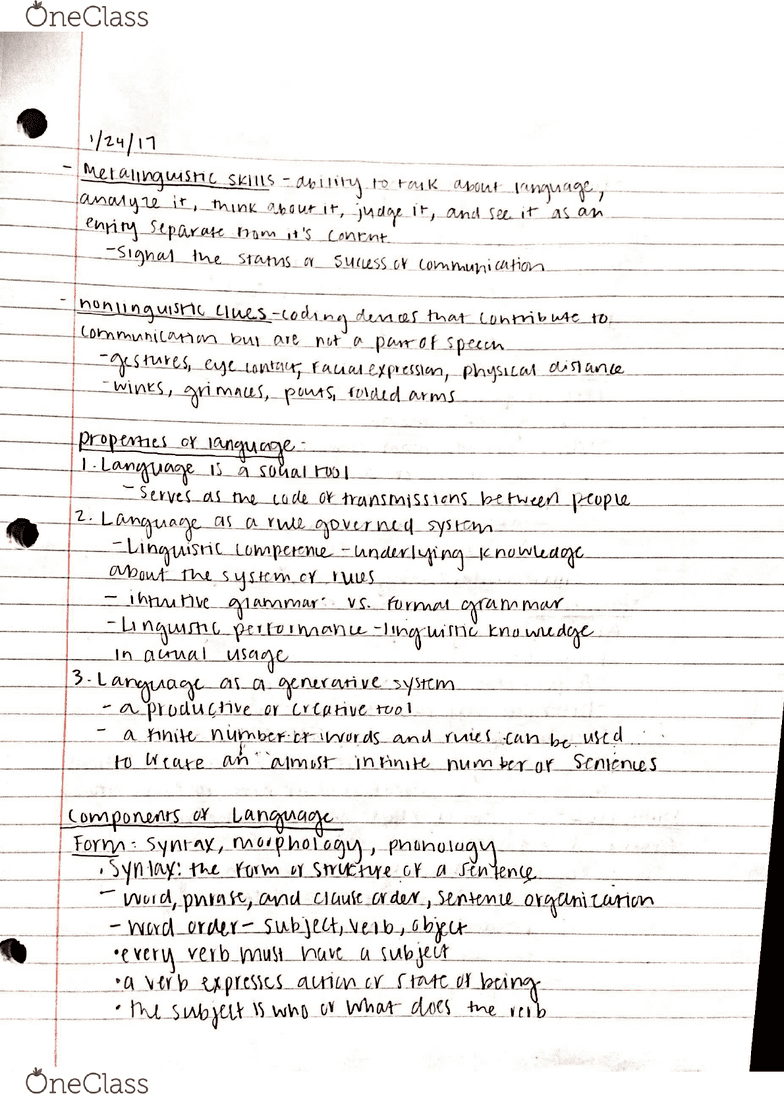 OneClass
1/24/17
- Metalinguistic skills - ability to talk about language,
analyze it, think about it, judge it, and see it as an
entity separate from it's content
- signal the status or sucess of communication
- nonlinguistic clues - coding devices that contribute to
communication but are not a part of speech
- gestures, eye contact, facial expression, physical distance
- winks, grimaces, pouts, folded arms
properties of language:
1. Language is a social tool
- serves as the code of transmissions between people
2. Language as a rule governed system
- Linguistic competence - underlying knowledge
about the system of rules
- intuitive grammar vs. formal grammar
- Linguistic performance - linguistic knowledge
in actual usage
3. Language as a generative system
- a productive or creative tool
- a finite number of words and rules can be used
to create an almost infinite number of sentences
Components of Language
Form: syntax, morphology, phonology
• Syntax: the form or structure of a sentence
- word, phrase, and clause order, sentence organization
- word order - subject, verb, object
• every verb must have a subject
• a verb expresses action or state of being
• the subject is who or what does the verb
OneClass